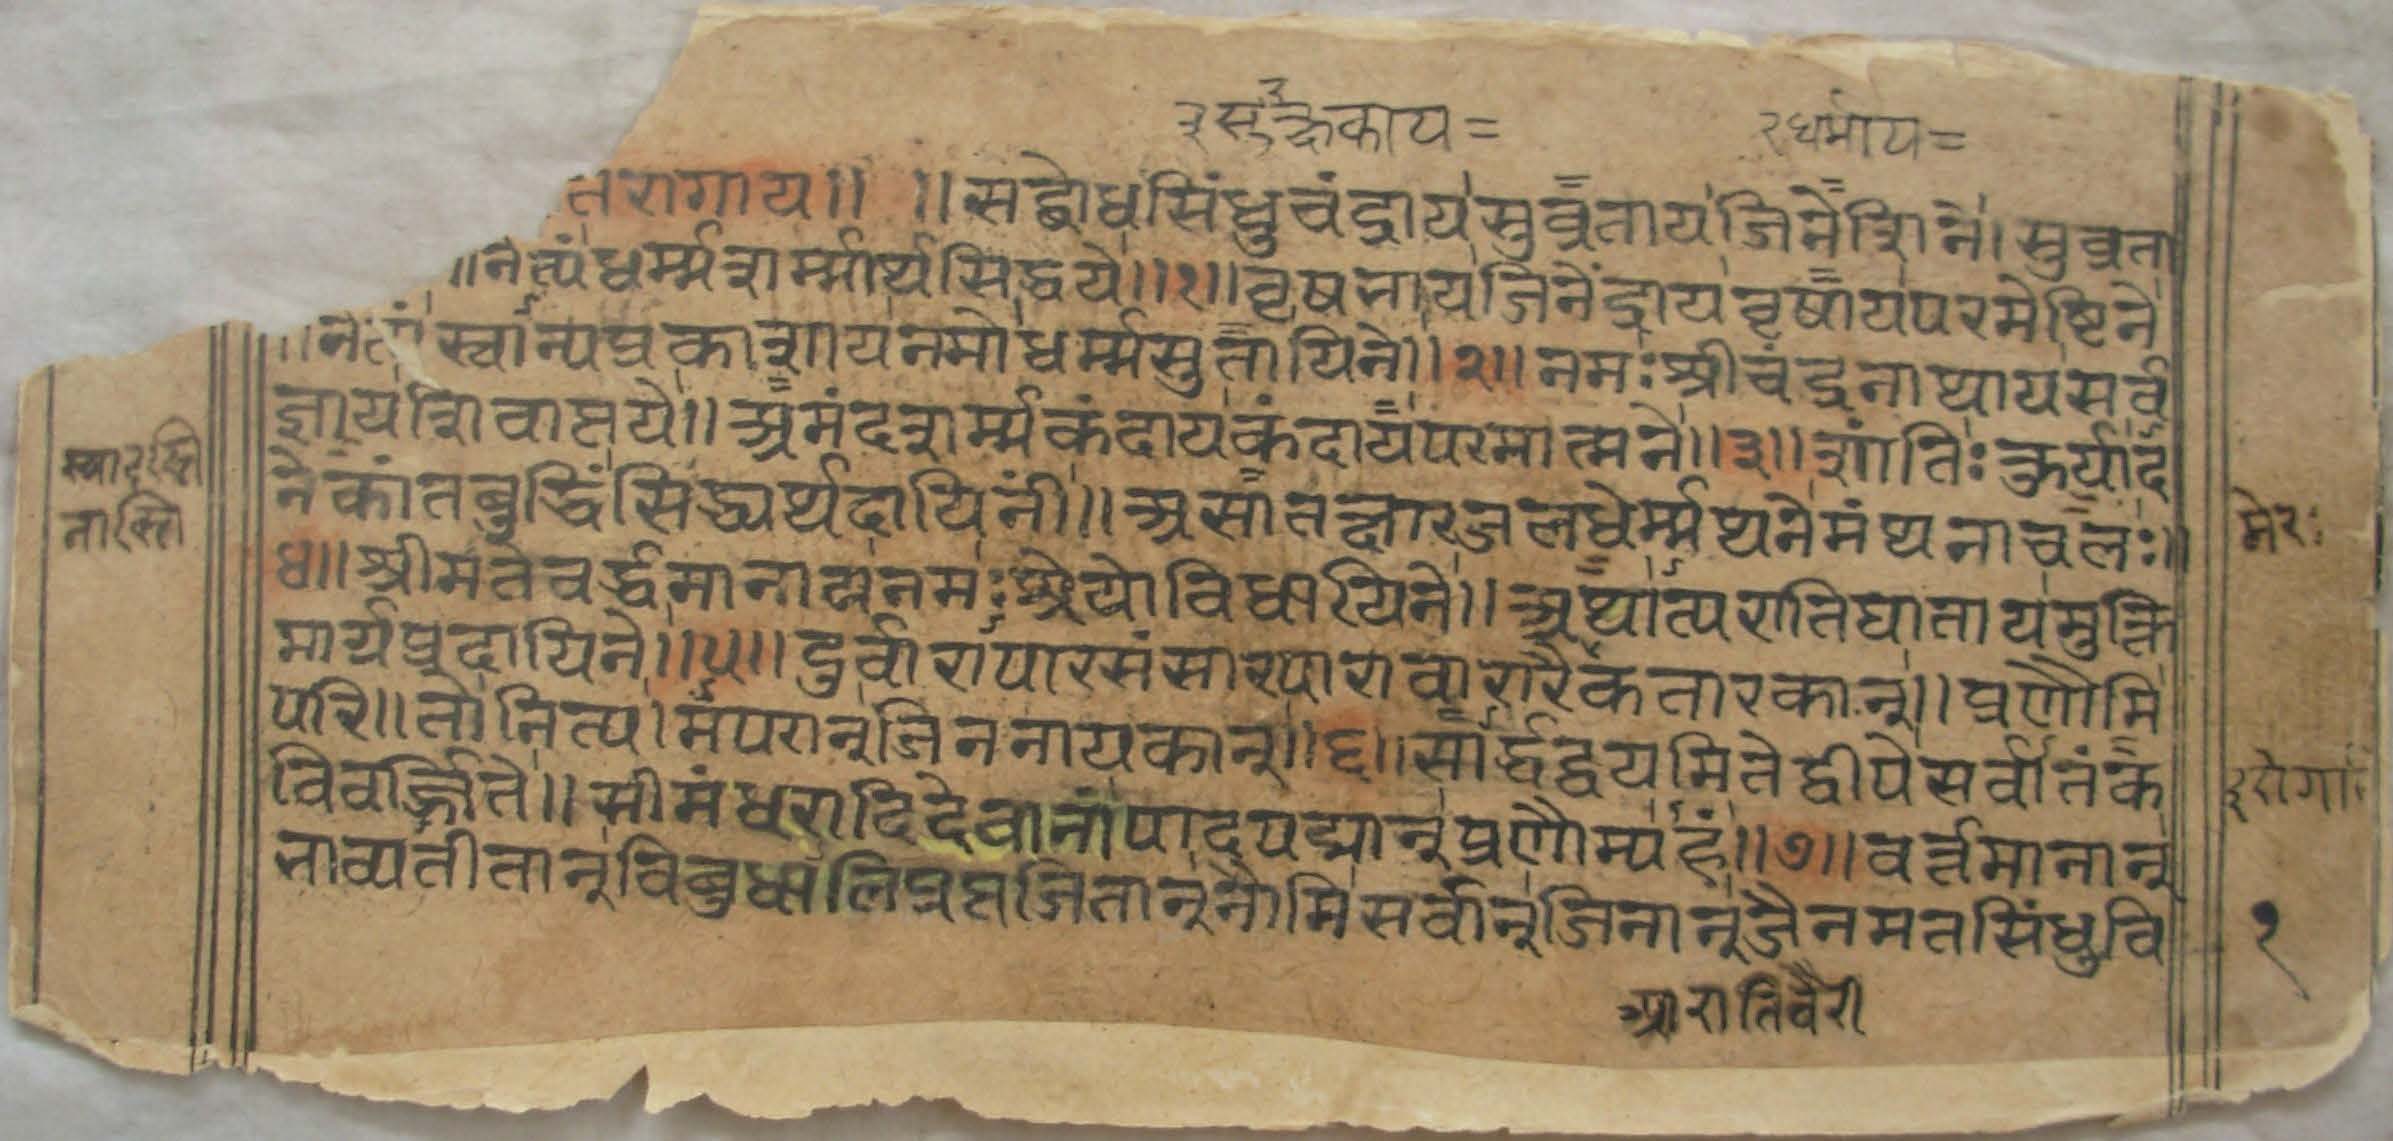 ३सुव्रतकाय=
२धर्माय=
तरागाय॥ ॥सद्बोधसिंधुचंद्रायसुव्रतायजिनेशिने।सुव्रता
॥नंत्यंधर्म्मशर्म्मार्थसिद्धये॥१॥वृषभायजिनेंद्रायवृषायपरमेष्टिने
स्वान्यप्रकाशायनमोधर्म्मसुतायिने॥२॥नमःश्रीचंद्रनाथायसर्व
ज्ञायशिवाप्तये॥अमंदशर्म्मकंदायकंदायपरमात्मने॥३॥शांतिःकुर्याद
नेकांतबुद्धिंसिद्ध्यर्थदायिनीं॥असातक्षारजलधेर्म्मथनेमंथनाचलः॥
४॥श्रीमतेवर्द्धमानायनमःश्रेयोविधायिने॥अथात्परातिघातायमुक्ति
मार्यप्रदायिने॥५॥दुर्वारापारसंसारपारावारैकतारकान्॥प्रणौमि
परि॥तोनित्यमपरान्जिननायकान्॥६॥सार्द्धद्वयमितेद्वीपेसर्वातंक
विवर्ज्जिते॥सीमंधरादिदेवानांपादपद्मान्प्रणौम्यहं॥७॥वर्त्तमानान्
भाव्यतीतान्विबुधालिप्रप्तजितान्नौमिसर्वान्जिनान्जैनमतसिंधुवि
मेरः
१
आरातिवैरी